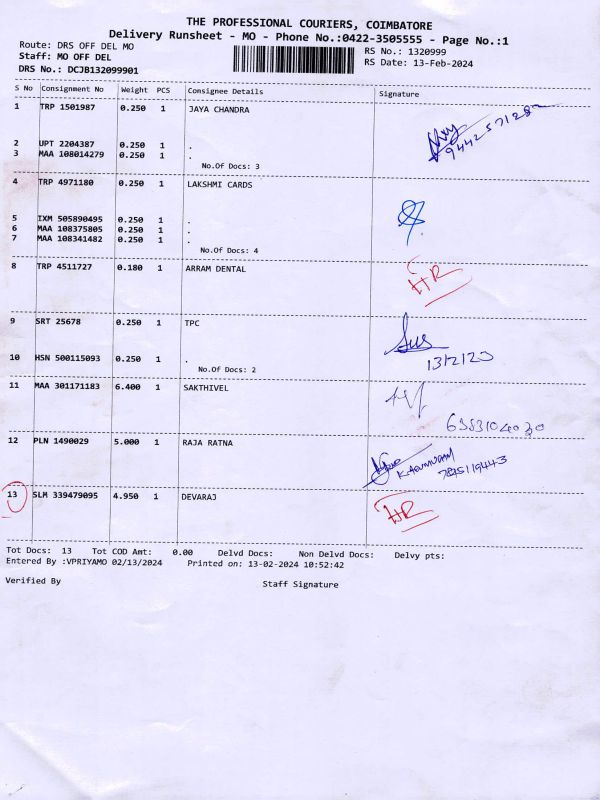 THE PROFESSIONAL COURIERS, COIMBATORE
Delivery Runsheet - MO - Phone No.:0422-3505555 - Page No.:1
Route: DRS OFF DEL MO RS No.: 1320999
Staff: MO OFF DEL RS Date: 13-Feb-2024
DRS No.: DCJB132099901
S No Consignment No Weight PCS Consignee Details Signature
1 TRP 1501987 0.250 1 JAYA CHANDRA
2 UPT 2204387 0.250 1 .
3 MAA 108014279 0.250 1 .
No.Of Docs: 3
4 TRP 4971180 0.250 1 LAKSHMI CARDS
5 IXM 505890495 0.250 1 .
6 MAA 108375805 0.250 1 .
7 MAA 108341482 0.250 1 .
No.Of Docs: 4
8 TRP 4511727 0.180 1 ARRAM DENTAL HR
9 SRT 25678 0.250 1 TPC
10 HSN 500115093 0.250 1 . 13/2/20
No.Of Docs: 2
11 MAA 301171183 6.400 1 SAKTHIVEL
6383104030
12 PLN 1490029 5.000 1 RAJA RATNA
13 SLM 339479095 4.950 1 DEVARAJ HR
Tot Docs: 13 Tot COD Amt: 0.00 Delvd Docs: Non Delvd Docs: Delvy pts:
Entered By :VPRIYAMO 02/13/2024 Printed on: 13-02-2024 10:52:42
Verified By Staff Signature